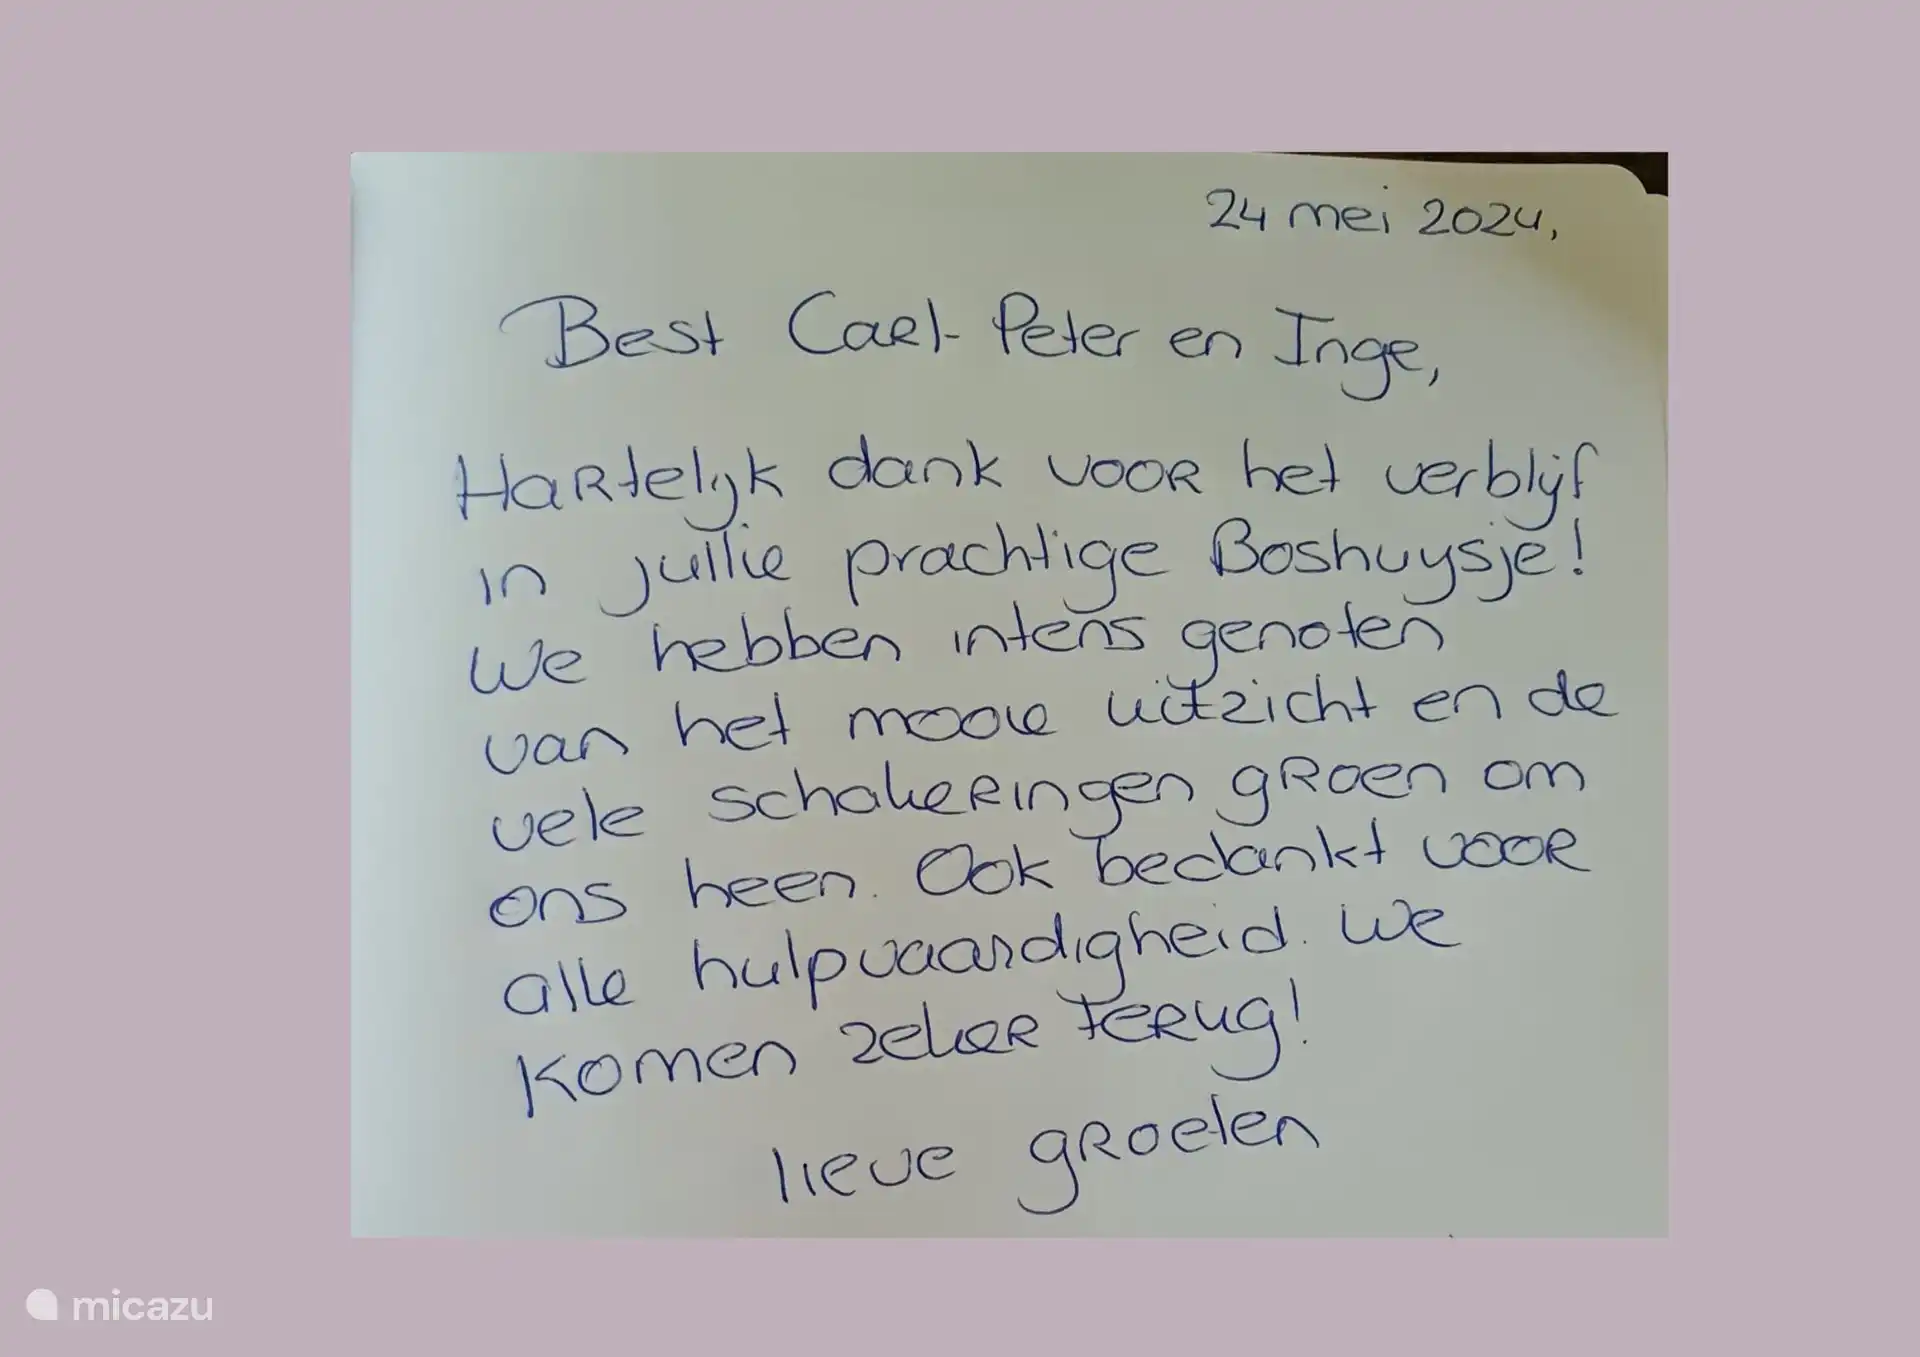 24 mei 2024,
Best Carl-Peter en Inge,
Hartelijk dank voor het verblijf
in jullie prachtige Boshuysje!
We hebben intens genoten
van het mooie uitzicht en de
vele schakeringen groen om
ons heen. Ook bedankt voor
alle hulpvaardigheid. We
komen zeker terug!
lieve groeten
micazu